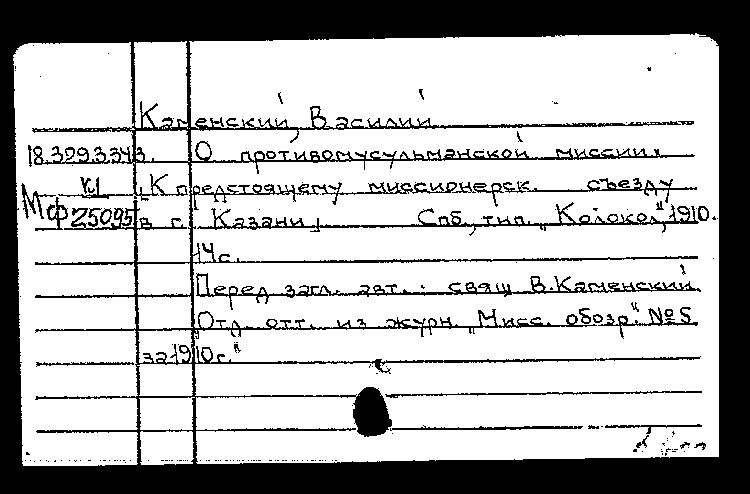 Каменский, Василий
18.329.3.343. О противомусульманской миссии.
К1 „К предстоящему миссионерск. съезду
Мф 25095 в г. Казани] Спб., тип. „Колокол", 1910.
14с.
Перед загл. авт.: свящ. В.Каменский.
„Отд. отт. из журн. „Мисс. обозр." №5
за 1910г."